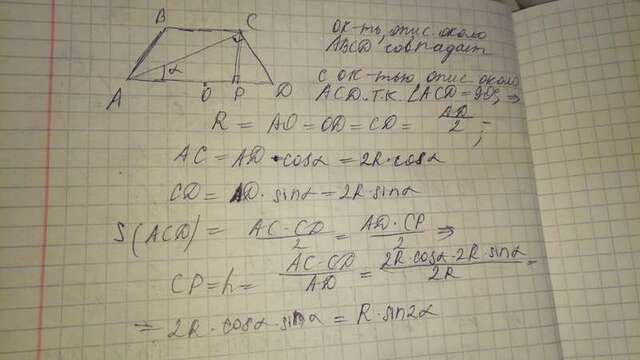 B
C
α
A
O
P
D
ок-ть, опис около
ABCD совпадает
с ок-тью опис около
ACD. т.к. ∠ACD = 90°, ⇒
R = AO = OD = CD = AD/2;
AC = AD · cosα = 2R · cosα
CD = AD · sinα = 2R · sinα
S(ACD) = AC · CD/2 = AD · CP/2 ⇒
CP = h = AC · CD/AD = 2R · cosα · 2R · sinα/2R =
= 2R · cosα · sinα = R · sin2α